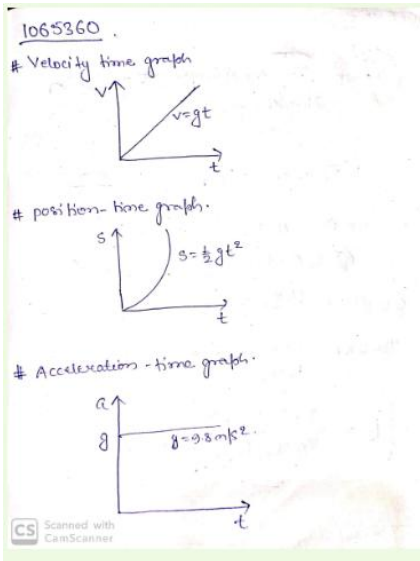 1065360.
# Velocity time graph
V
v=gt
t
# position-time graph.
S
s=½gt²
t
# Acceleration-time graph.
a
g
g=9.8m/s².
t
CS Scanned with
CamScanner